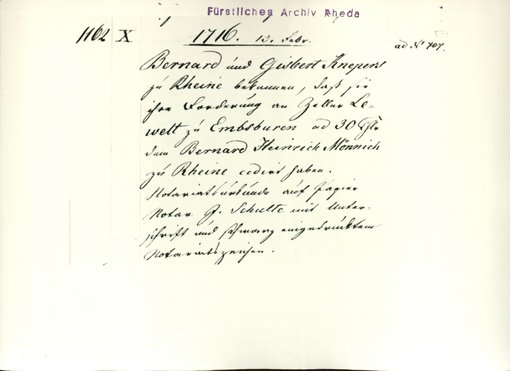 Fürstliches Archiv Rheda
1162 X 1716. 12. Febr. ad Nº 707.
Bernard und Gisbert Knepers
zu Rheine bekennen, daß sie
ihre Forderung an Zeller Le-
welt zu Embsbüren ad 30
dem Bernard Heinrich Mönnich
zu Rheine cedirt haben.
Notariatsurkunde auf Papier
Notar G. Schulte mit Unter-
schrift und schwarz eingedrücktem
Notariatszeichen.